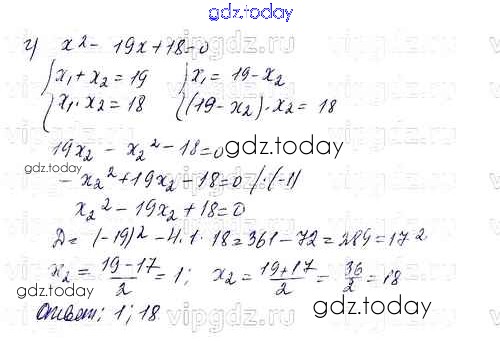 gdz.today
г) x² - 19x + 18 = 0
{ x₁ + x₂ = 19 { x₁ = 19 - x₂
{ x₁ · x₂ = 18 { (19 - x₂) · x₂ = 18
19x₂ - x₂² - 18 = 0
gdz.today
gdz.today
- x₂² + 19x₂ - 18 = 0 / · (-1)
x₂² - 19x₂ + 18 = 0
D = (-19)² - 4 · 1 · 18 = 361 - 72 = 289 = 17²
x₂ = (19 - 17)/2 = 1; x₂ = (19 + 17)/2 = 36/2 = 18
gdz.today
gdz.today
Ответ: 1; 18